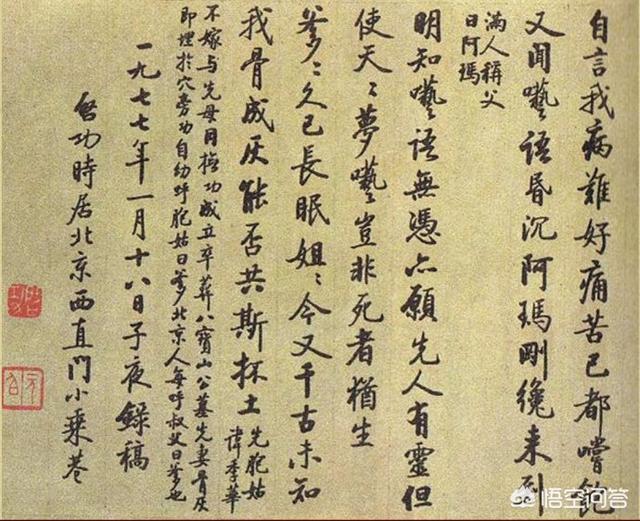 自言我病難好痛苦已都嘗飽
又聞囈語昏沉阿瑪剛纔來到
滿人稱父
曰阿瑪
明知囈語無憑亦願先人有靈但
使天天夢囈豈非死者猶生
爹爹久已長眠姐姐今又千古未知
我骨成灰能否共斯抔土
先胞姑
諱季華
不嫁与先母同撫功成立卒葬八寶山公墓先妻骨灰
即埋於穴旁功自幼呼胞姑曰爹爹北京人每呼叔父曰爹也
一九七七年一月十八日子夜錄稿
啓功時居北京西直門小乘巷
悟空问答